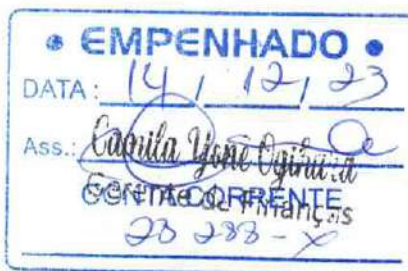 • EMPENHADO •
DATA: 14 / 12 / 23
Ass.: Camila Yone
Gerente de Finanças
CONTA CORRENTE